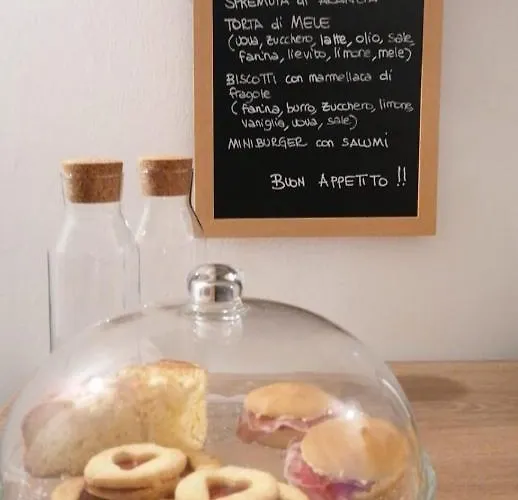 SPREMUTA di ARANCIA
TORTA di MELE
(uova, zucchero, latte, olio, sale,
farina, lievito, limone, mele)
BISCOTTI con marmellata di
fragole
(farina, burro, zucchero, limone,
vaniglia, uova, sale)
MINIBURGER con SALUMI
BUON APPETITO !!